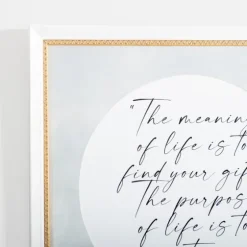 "The meaning
of life is to
find your gif
The purpos
of life is to